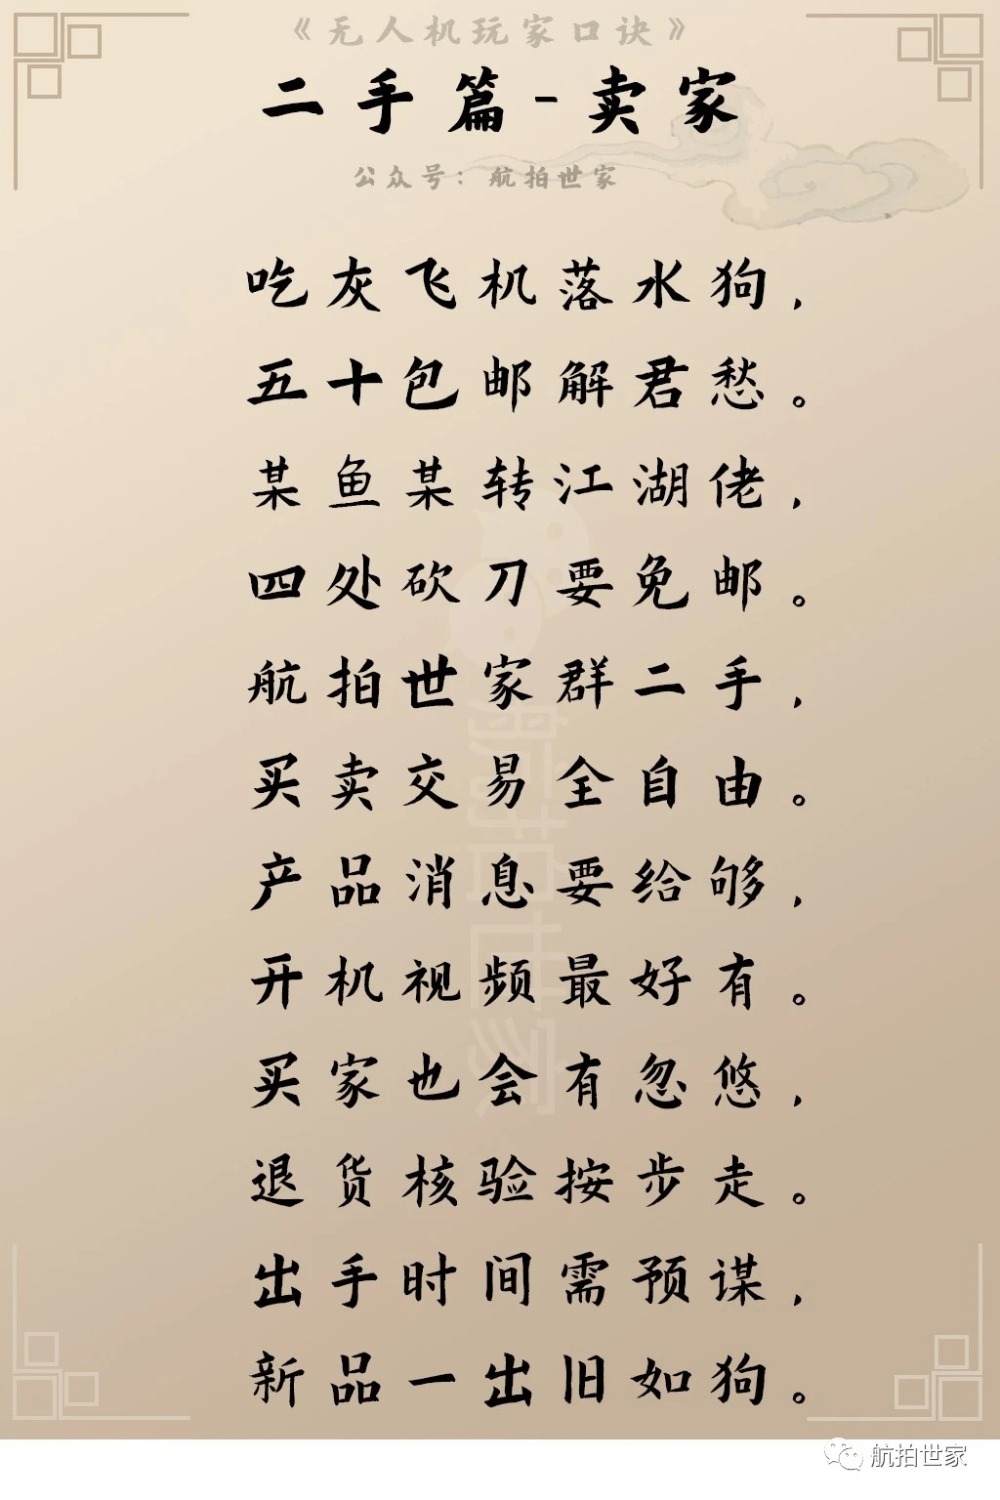 《无人机玩家口诀》
二手篇-卖家
公众号：航拍世家
吃灰飞机落水狗，
五十包邮解君愁。
某鱼某转江湖佬，
四处砍刀要免邮。
航拍世家群二手，
买卖交易全自由。
产品消息要给够，
开机视频最好有。
买家也会有忽悠，
退货核验按步走。
出手时间需预谋，
新品一出旧如狗。
航拍世家
航拍世家